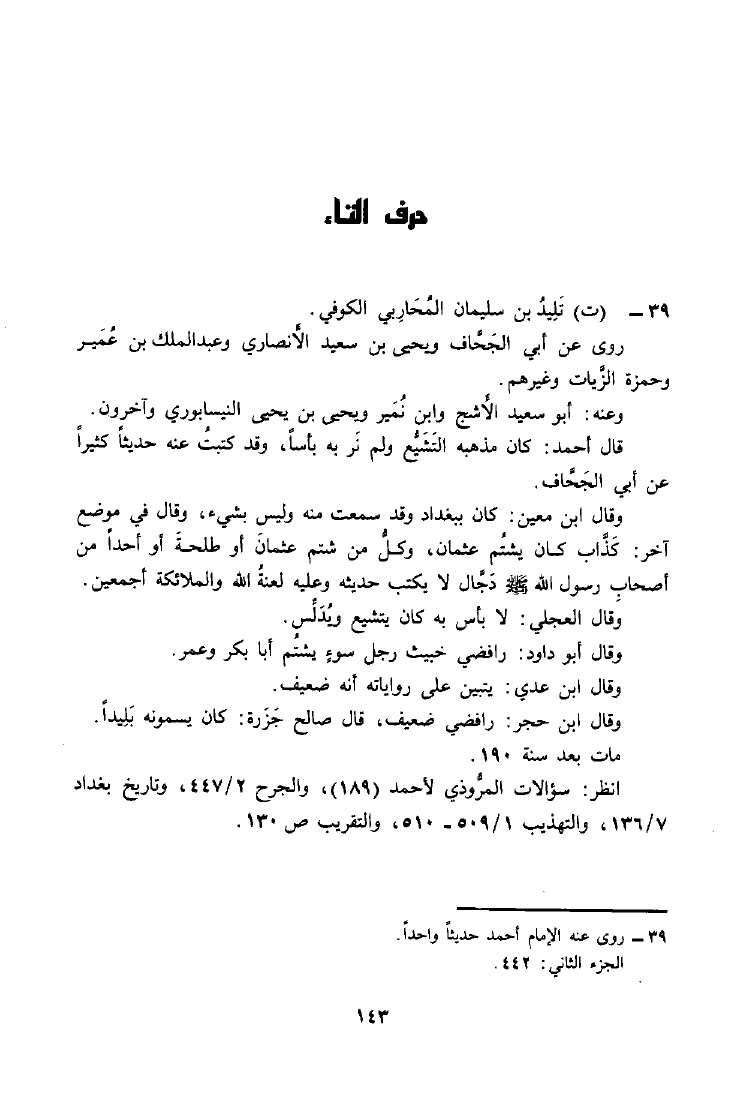 حرف التاء
٣٩ ـ (ت) تَلِيدُ بن سليمان المُحَارِبي الكوفي.
روى عن أبي الجَحَّاف ويحيى بن سعيد الأنصاري وعبدالملك بن عُمَيـر
وحمزة الزَّيات وغيرهم.
وعنه: أبو سعيد الأشج وابن نُمَير ويحيى بن يحيى النيسابوري وآخرون.
قال أحمد: كان مذهبه التَشَيُّع ولم نَر به بأساً، وقد كتبتُ عنه حديثاً كثيراً
عن أبي الجَحَّاف.
وقال ابن معين: كان ببغداد وقد سمعت منه وليس بشيء، وقال في موضع
آخر: كَذَّاب كـان يشتُم عثمان، وكـلُّ من شتم عثمانَ أو طلحـةَ أو أحداً من
أصحابِ رسول الله ﷺ دَجَّال لا يكتب حديثه وعليه لعنةُ الله والملائكة أجمعين.
وقال العجلي: لا بأس به كان يتشيع ويُدَلِّس.
وقال أبو داود: رافضي خبيث رجل سوءٍ يشتُم أبا بكر وعمر.
وقال ابن عدي: يتبين على رواياته أنه ضعيف.
وقال ابن حجر: رافضي ضعيف، قال صالح جَزَرة: كان يسمونه بَلِيداً.
مات بعد سنة ١٩٠.
انظر: سؤالات المرُّوذي لأحمد (١٨٩)، والجرح ٤٤٧/٢، وتاريخ بغداد
١٣٦/٧، والتهذيب ٥٠٩/١ ـ ٥١٠، والتقريب ص ١٣٠.
٣٩ ـ روى عنه الإمام أحمد حديثاً واحداً.
الجزء الثاني: ٤٤٢.
١٤٣